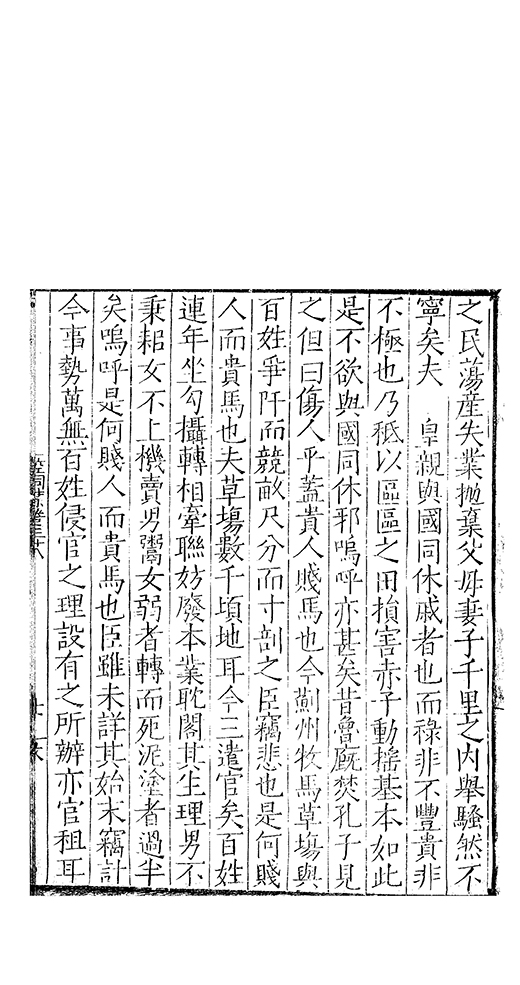 之民蕩産失業抛棄父母妻子千里之内舉騷然不
寧矣夫　皇親與國同休戚者也而祿非不豐貴非
不極也乃秪以區區之田損害赤子動揺基本如此
是不欲與國同休邪嗚呼亦甚矣昔魯廐焚孔子見
之但曰傷人乎蓋貴人賤馬也今薊州牧馬草塲與
百姓爭阡而競畝尺分而寸剖之臣竊悲也是何賤
人而貴馬也夫草塲數千頃地耳今三遣官矣百姓
連年坐勾攝轉相牽聯妨廢本業耽閣其生理男不
秉耜女不上機賣男鬻女弱者轉而死泥塗者過半
矣嗚呼是何賤人而貴馬也臣雖未詳其始末竊計
今事勢萬無百姓侵官之理設有之所辦亦官租耳